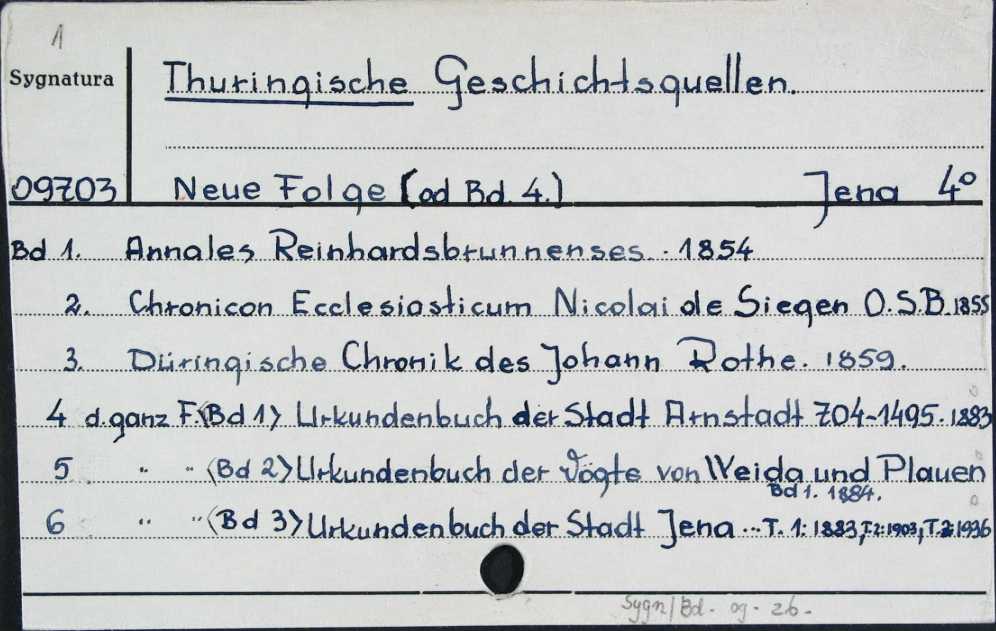 1
Sygnatura
Thuringische Geschichtsquellen.
09703 Neue Folge (od Bd. 4.) Jena 4°
Bd 1. Annales Reinhardsbrunnenses. 1854
2. Chronicon Ecclesiasticum Nicolai de Siegen O.S.B. 1855
3. Düringische Chronik des Johann Rothe. 1859.
4 d. ganz F. <Bd 1> Urkundenbuch der Stadt Arnstadt 704-1495. 1883
5 " " <Bd 2> Urkundenbuch der Vögte von Weida und Plauen
Bd 1. 1884.
6 " " <Bd 3> Urkundenbuch der Stadt Jena ... T. 1: 1883, T. 2: 1903, T. 3: 1936
Sygn/Bd. og. 26.